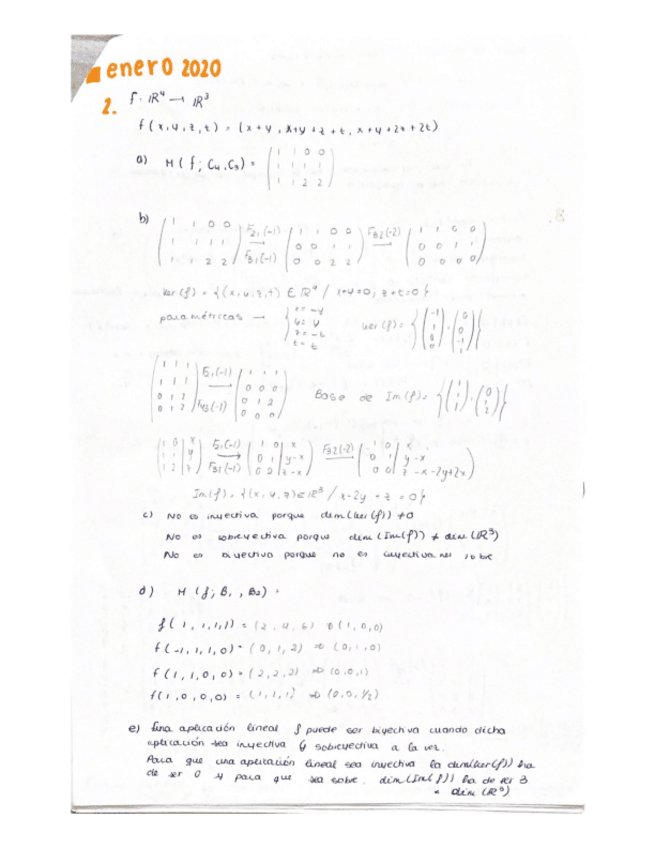 enero 2020
2. f: ℝ⁴ → ℝ³
f(x,y,z,t) = (x+y, x+y+z+t, x+y+2z+2t)
a) M(f; C₄, C₃) = (1 1 0 0
1 1 1 1
1 1 2 2)
b) (1 1 0 0 F₂₁(-1) 1 1 0 0 F₃₂(-2) 1 1 0 0
1 1 1 1 → 0 0 1 1 → 0 0 1 1
1 1 2 2) F₃₁(-1) 0 0 2 2 0 0 0 0
Ker(f) = {(x,y,z,t) ∈ ℝ⁴ / x+y=0; z+t=0}
paramétricas → { x = -y
y = y
z = -t
t = t
Ker(f) = {(-1 1 0 0), (0 0 -1 1)}
1 1 1 F₂₁(-1) 1 1 1
1 1 1 → 0 0 0
0 1 2 F₄₃(-1) 0 1 2
0 1 2 0 0 0
Base de Im(f) = {(1 1 1), (0 1 2)}
(1 0 | x F₂₁(-1) 1 0 | x F₃₂(-2) 1 0 | x
1 1 | y → 0 1 | y-x → 0 1 | y-x
1 2 | z) F₃₁(-1) 0 2 | z-x 0 0 | z-x-2y+2x
Im(f) = {(x,y,z) ∈ ℝ³ / x-2y+z = 0}
c) No es inyectiva porque dim(ker(f)) ≠ 0
No es sobreyectiva porque dim(Im(f)) ≠ dim(ℝ³)
No es biyectiva porque no es inyectiva ni sobre
d) M(f; B₁, B₂) =
f(1,1,1,1) = (2,4,6) ⇒ (1,0,0)
f(-1,1,1,0) = (0,1,2) ⇒ (0,1,0)
f(1,1,0,0) = (2,2,2) ⇒ (0,0,1)
f(1,0,0,0) = (1,1,1) ⇒ (0,0,1/2)
e) una aplicación lineal f puede ser biyectiva cuando dicha
aplicación sea inyectiva y sobreyectiva a la vez.
Para que una aplicación lineal sea inyectiva la dim(ker(f)) ha
de ser 0 y para que sea sobre, dim(Im(f)) ha de ser 3
= dim(ℝ³)